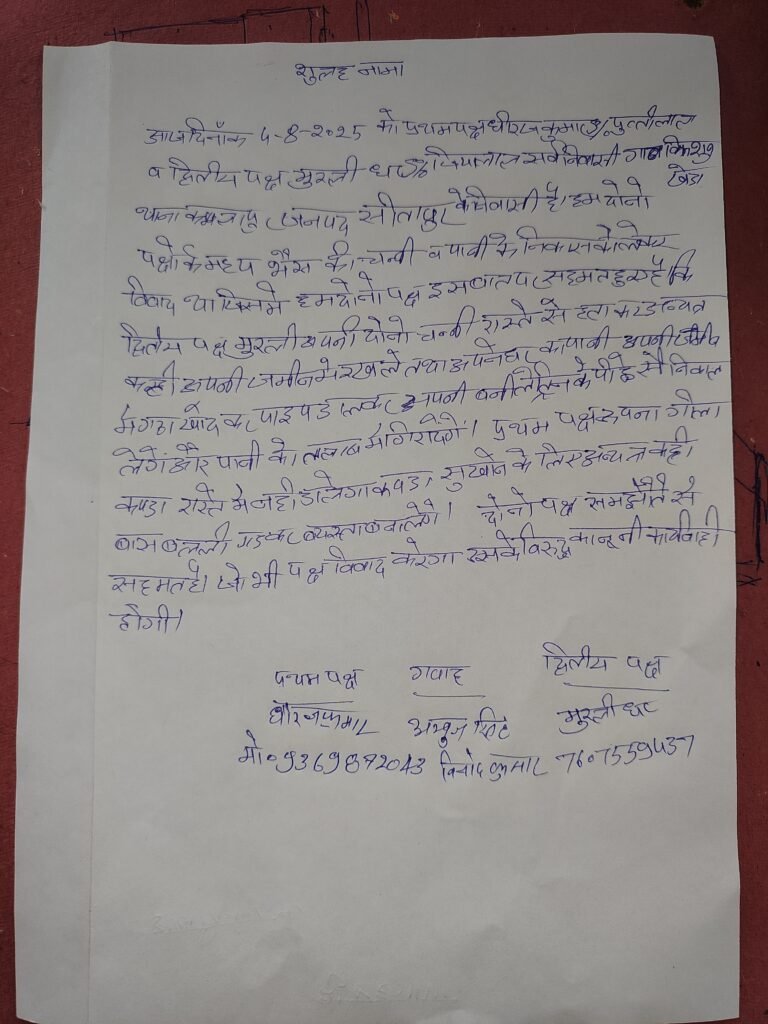 सुलह नामा
आज दिनाँक 4-8-2025 को प्रथम पक्ष धीरज कुमार S/ पुत्तीलाल
व द्वितीय पक्ष मुरली धर S/ सर्व निवासी गाँव
खेड़ा
थाना कमलापुर जनपद सीतापुर के निवासी है। हम दोनो
पक्षो के मध्य भैंस की चन्नी व पानी के निकास को लेकर
विवाद था जिसमे हम दोनो पक्ष इस बात पर सहमत हुए है कि
द्वितीय पक्ष मुरली अपनी दोनो चन्नी रास्ते से हटा कर अन्यत्र
कही अपनी जमीन मे रख ले तथा अपने घर का पानी अपनी जमीन
मे गढ्ढा खोद कर पाइप डालकर अपनी बनी लैट्रिन के पीछे से निकाल
लेगें और पानी को तालाब में गिरायेगें। प्रथम पक्ष अपना गीला
कपडा रास्ते मे नही डालेगा कपडा सुखाने के लिए अन्यत्र कही
बास बल्ली गाडकर व्यवस्था बना लेगे। दोनो पक्ष समझौते से
सहमत है। जो भी पक्ष विवाद करेगा उसके विरुद्ध कानूनी कार्यवाही
होगी।
प्रथम पक्ष गवाह द्वितीय पक्ष
धीरज कुमार सिंह मुरली धर
मो० 9369872043 विनोद कुमार 7607559437